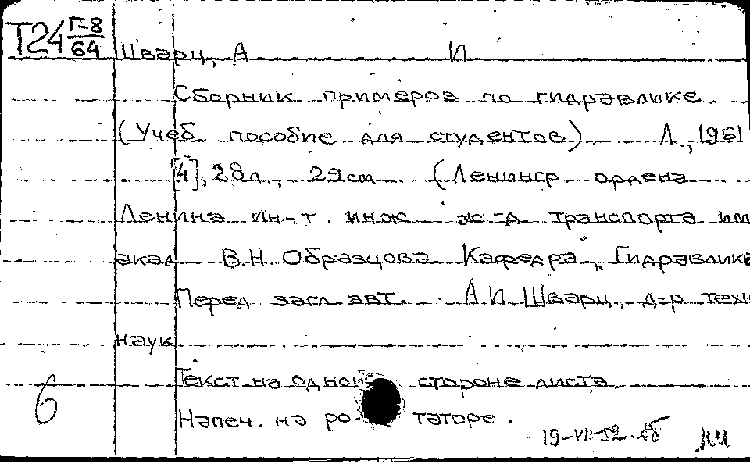 Т24 Г-8
64
Шварц, А И
Сборник примеров по гидравлике
(Учеб. пособие для студентов) Л., 1961
[4], 28л., 29см (Ленингр. ордена
Ленина ин-т. инж. ж.-д. транспорта им
акад. В.Н. Образцова Кафедра „Гидравлика
Перед загл. авт. А.И. Шварц, д-р техн
наук
Текст на одной стороне листа
6
Напеч. на ротаторе.